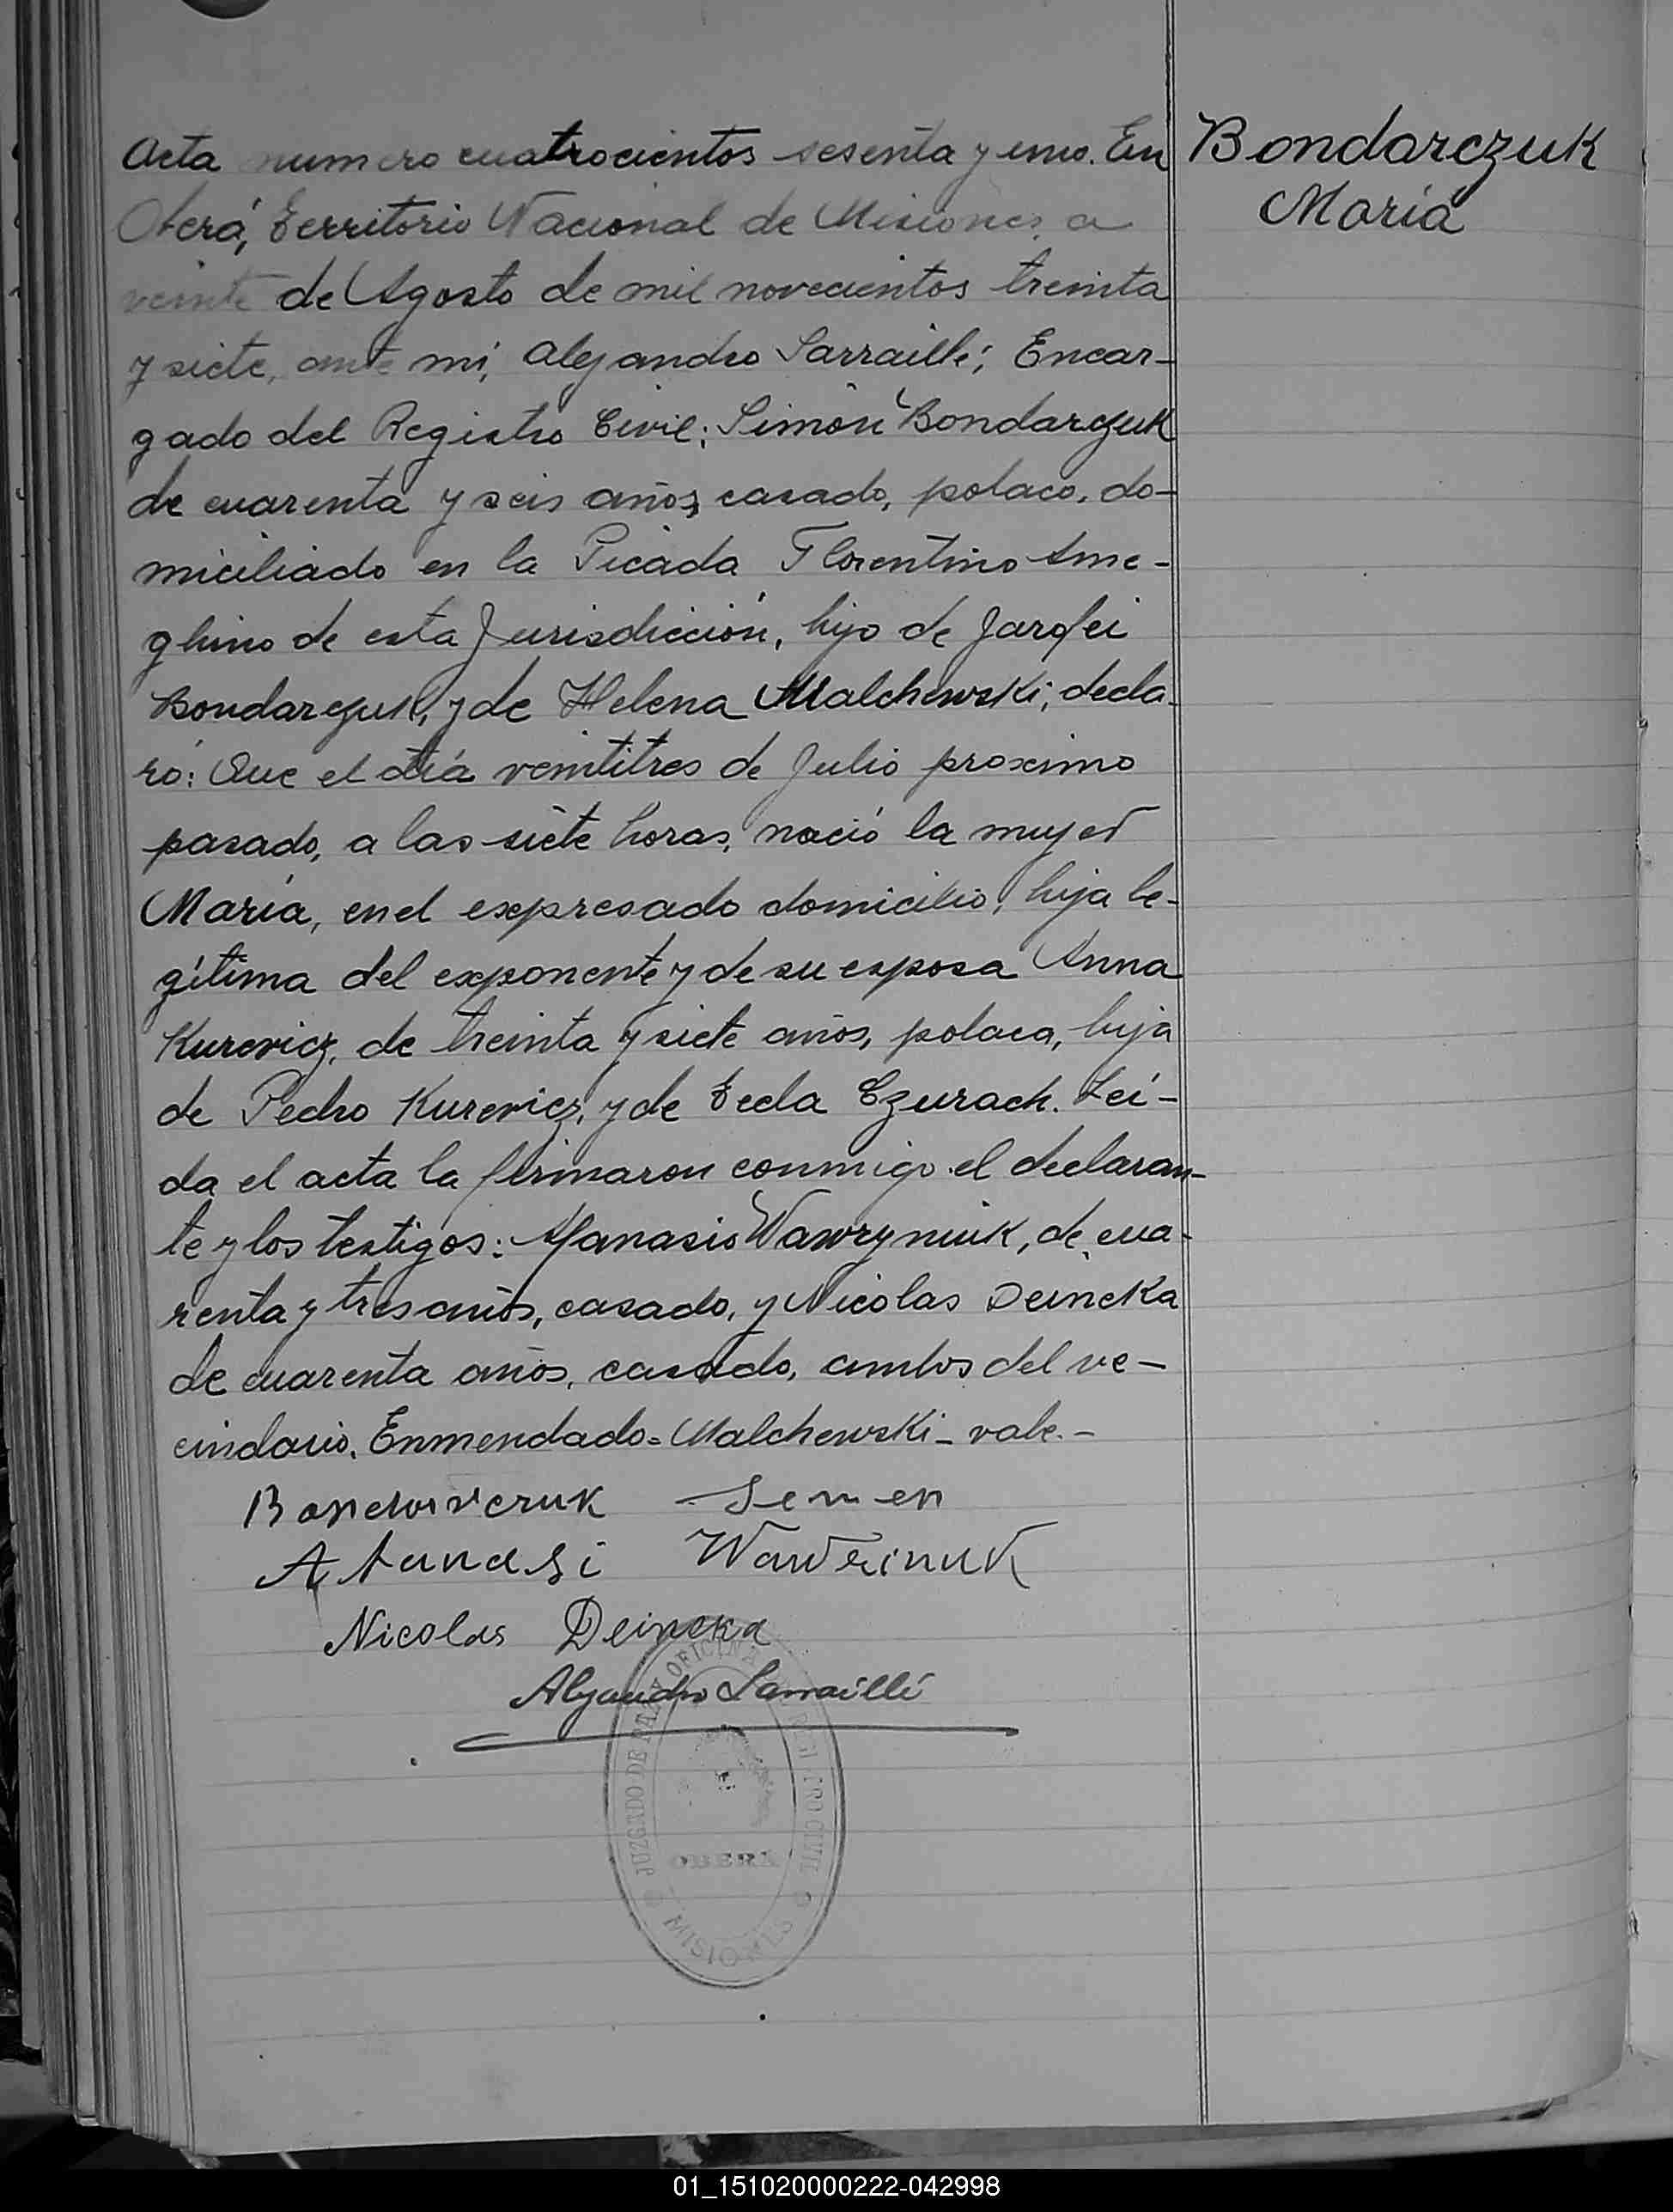 Acta numero cuatrocientos sesenta y uno. En
Oberá, Territorio Nacional de Misiones, a
veinte de Agosto de mil novecientos treinta
y siete, ante mi, Alejandro Sarraillé; Encar-
gado del Registro Civil: Simón Bondarczuk
de cuarenta y seis años, casado, polaco, do-
miciliado en la Picada Florentino Ame-
ghino de esta Jurisdicción, hijo de Jarofei
Bondarczuk, y de Helena Malchewski; decla-
ró: Que el día veintitres de Julio proximo
pasado, a las siete horas, nació la mujer
María, en el expresado domicilio, hija le-
gítima del exponente y de su esposa Anna
Kurevicz, de treinta y siete años, polaca, hija
de Pedro Kurevicz, y de Tecla Czurach. Leí-
da el acta la firmaron conmigo el declaran-
te y los testigos: Afanasio Wawryniuk, de cua-
renta y tres años, casado, y Nicolas Deineka
de cuarenta años, casado, ambos del ve-
cindario. Enmendado=Malchewski-vale.-
Semen
Atanasi Wawrinuk
Nicolas Deineka
Alejandro Sarraillé
JUZGADO DE PAZ Y OFICINA DEL REGISTRO CIVIL
OBERA
MISIONES
Bondarczuk
María
01_151020000222-042998